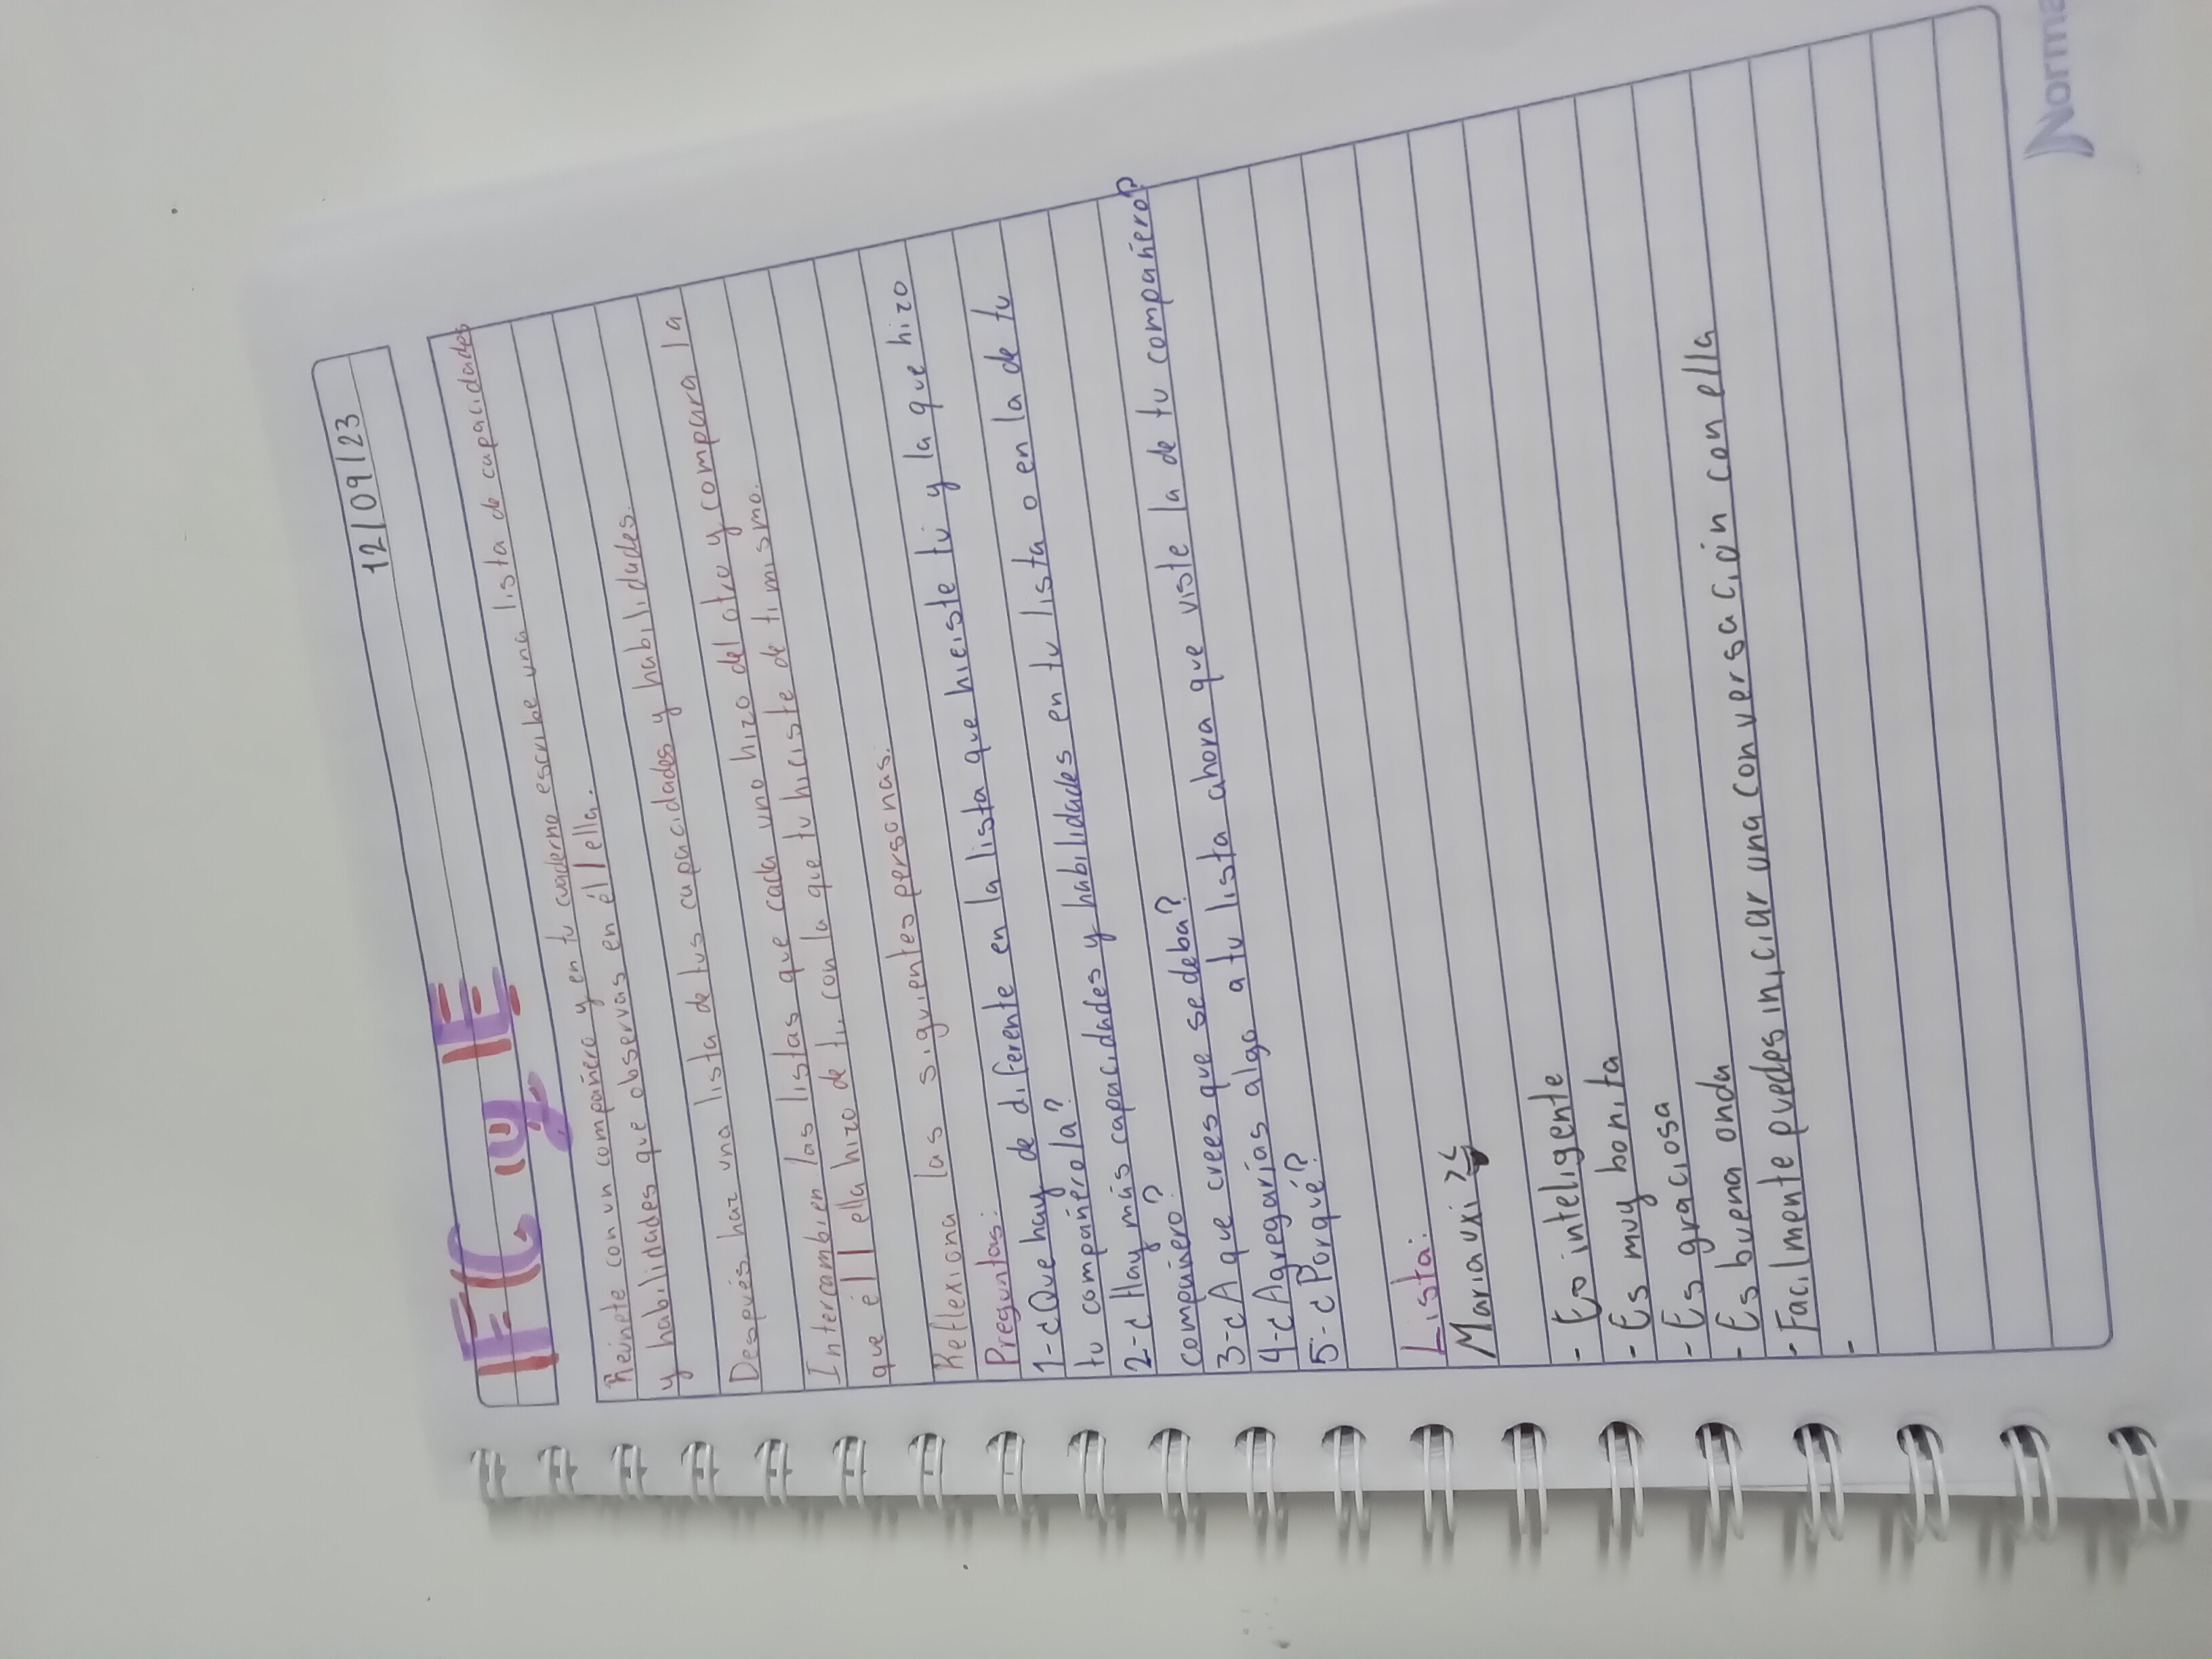 12/09/23
F.C. y E
Reúnete con un compañero y en tu cuaderno escribe una lista de capacidades
y habilidades que observas en él / ella.
Después haz una lista de tus capacidades y habilidades.
Intercambien las listas que cada uno hizo del otro y compara la
que él / ella hizo de ti, con la que tu hiciste de ti mismo.
Reflexiona las siguientes personas.
Preguntas:
1-¿Que hay de diferente en la lista que hiciste tú y la que hizo
tu compañero/a?
2-¿Hay más capacidades y habilidades en tu lista o en la de tu
compañero?
3-¿A que crees que se deba?
4-¿Agregarías algo a tu lista ahora que viste la de tu compañero?
5-¿Porqué?
Lista:
Mariauxi
- Es inteligente
- Es muy bonita
- Es graciosa
- Es buena onda
- Facilmente puedes iniciar una conversación con ella
-
Norma